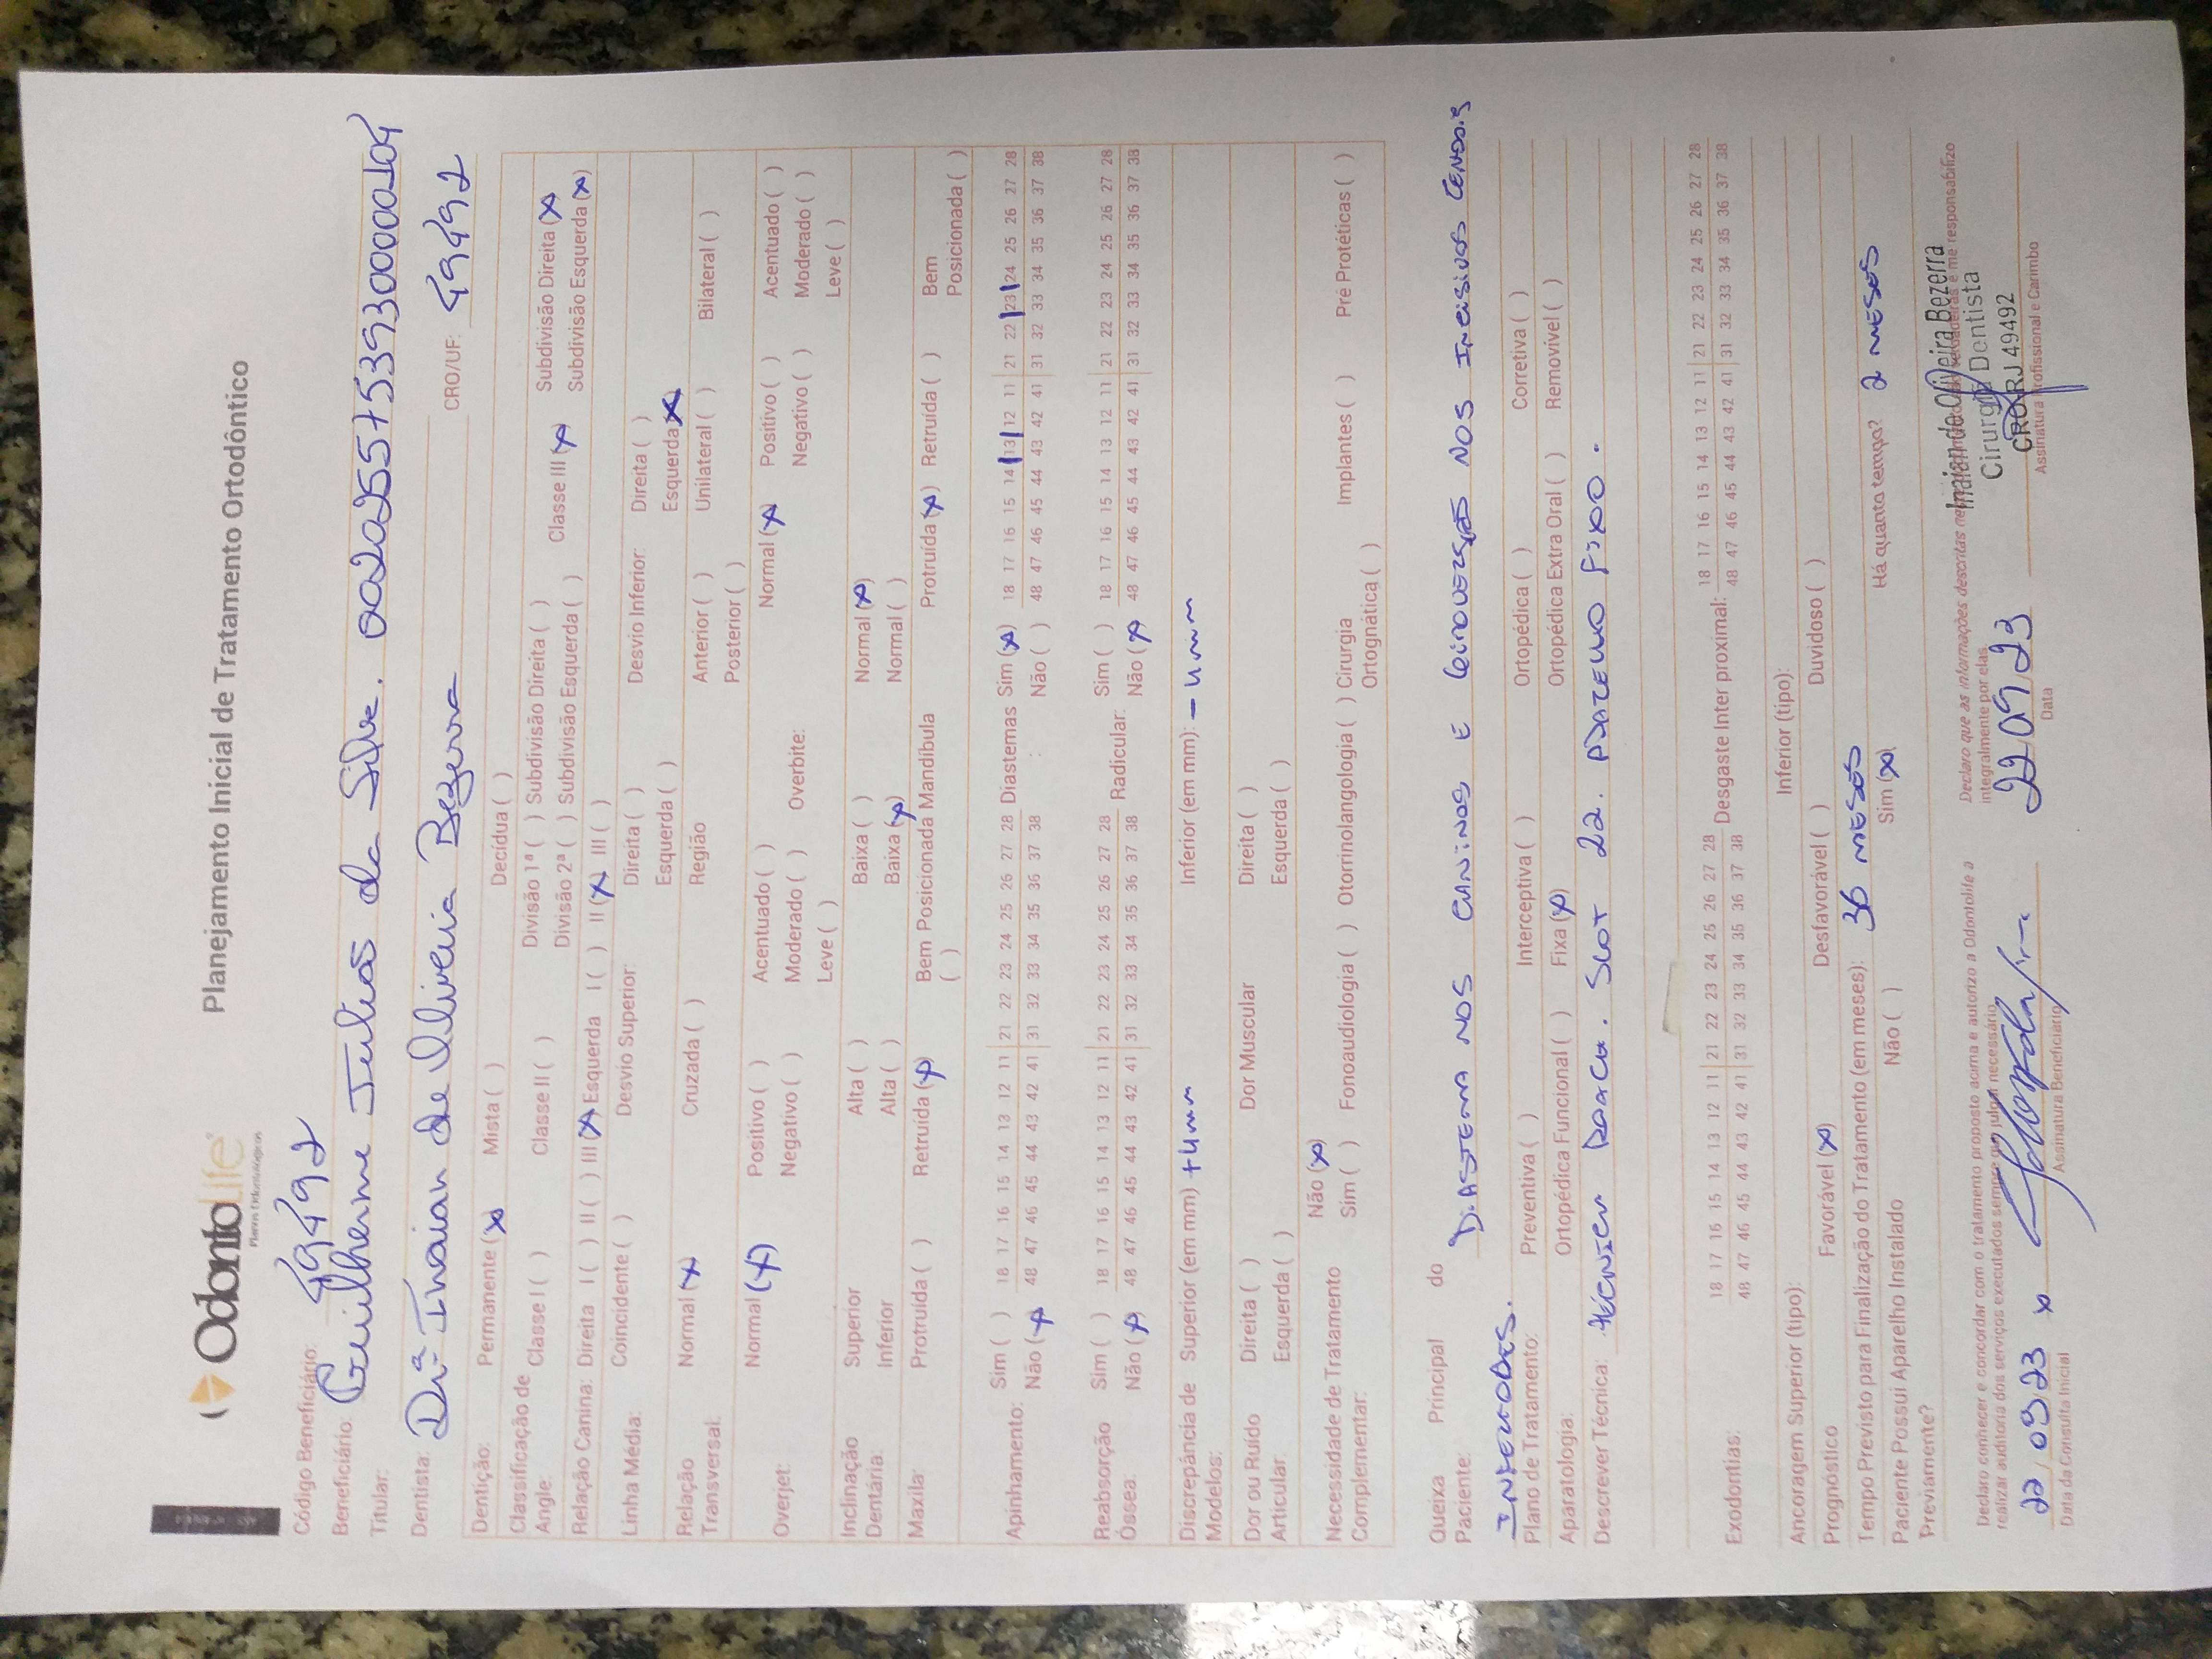 OdontoLife
Planos Odontológicos
Planejamento Inicial de Tratamento Ortodôntico
Código Beneficiário: 49492
Beneficiário: Guilherme Julião da Silva. 00202557539300000104
Titular:
Dentista: Drª Inaian de Oliveira Bezerra CRO/UF: 49492
Dentição: Permanente (x) Mista ( ) Decídua ( )
Classificação de Angle: Classe I ( ) Classe II ( ) Divisão 1ª ( ) Subdivisão Direita ( ) Classe III (x) Subdivisão Direita (x)
Divisão 2ª ( ) Subdivisão Esquerda ( ) Subdivisão Esquerda (x)
Relação Canina: Direita I ( ) II ( ) III (x) Esquerda I ( ) II (x) III ( )
Linha Média: Coincidente ( ) Desvio Superior: Direita ( ) Desvio Inferior: Direita ( )
Esquerda ( ) Esquerda (x)
Relação Transversal: Normal (x) Cruzada ( ) Região Anterior ( ) Unilateral ( ) Bilateral ( )
Posterior ( )
Overjet: Normal (x) Positivo ( ) Acentuado ( ) Overbite: Normal (x) Positivo ( ) Acentuado ( )
Negativo ( ) Moderado ( ) Negativo ( ) Moderado ( )
Leve ( ) Leve ( )
Inclinação Dentária: Superior Alta ( ) Baixa ( ) Normal (x)
Inferior Alta ( ) Baixa (x) Normal ( )
Maxila: Protruída ( ) Retruída (x) Bem Posicionada ( ) Mandíbula Protruída (x) Retruída ( ) Bem Posicionada ( )
Apinhamento: Sim ( ) 18 17 16 15 14 13 12 11 21 22 23 24 25 26 27 28 Diastemas Sim (x) 18 17 16 15 14 13 12 11 21 22 23 24 25 26 27 28
Não (x) 48 47 46 45 44 43 42 41 31 32 33 34 35 36 37 38 : Não ( ) 48 47 46 45 44 43 42 41 31 32 33 34 35 36 37 38
Reabsorção Óssea: Sim ( ) 18 17 16 15 14 13 12 11 21 22 23 24 25 26 27 28 Radicular: Sim ( ) 18 17 16 15 14 13 12 11 21 22 23 24 25 26 27 28
Não (x) 48 47 46 45 44 43 42 41 31 32 33 34 35 36 37 38 Não (x) 48 47 46 45 44 43 42 41 31 32 33 34 35 36 37 38
Discrepância de Modelos: Superior (em mm) +4mm Inferior (em mm): -4mm
Dor ou Ruído Articular: Direita ( ) Dor Muscular Direita ( )
Esquerda ( ) Esquerda ( )
Necessidade de Tratamento Complementar: Não (x)
Sim ( ) Fonoaudiologia ( ) Otorrinolangologia ( ) Cirurgia Ortognática ( ) Implantes ( ) Pré Protéticas ( )
Queixa Principal do Paciente: Diastema nos caninos e nos incisivos
inferiores.
Plano de Tratamento: Preventiva ( ) Interceptiva ( ) Ortopédica ( ) Corretiva ( )
Aparatologia: Ortopédica Funcional ( ) Fixa (x) Ortopédica Extra Oral ( ) Removível ( )
Descrever Técnica: Técnica Roach. Slot 22. Aparelho fixo.
Exodontias: 18 17 16 15 14 13 12 11 21 22 23 24 25 26 27 28 Desgaste Inter proximal: 18 17 16 15 14 13 12 11 21 22 23 24 25 26 27 28
48 47 46 45 44 43 42 41 31 32 33 34 35 36 37 38 48 47 46 45 44 43 42 41 31 32 33 34 35 36 37 38
Ancoragem Superior (tipo): Inferior (tipo):
Prognóstico Favorável (x) Desfavorável ( ) Duvidoso ( )
Tempo Previsto para Finalização do Tratamento (em meses): 36 meses
Paciente Possui Aparelho Instalado Previamente? Não ( ) Sim (x) Há quanto tempo? 2 meses
Declaro conhecer e concordar com o tratamento proposto acima e autorizo a Odontolife a
realizar auditoria dos serviços executados sempre que julgar necessário.
Declaro que as informações descritas são verdadeiras e me responsabilizo
integralmente por elas.
Inaian de Oliveira Bezerra
Cirurgiã Dentista
CRO RJ 49492
22/09/23 x 22 09 23
Data da Consulta Inicial Assinatura Beneficiário Data Assinatura Profissional e Carimbo